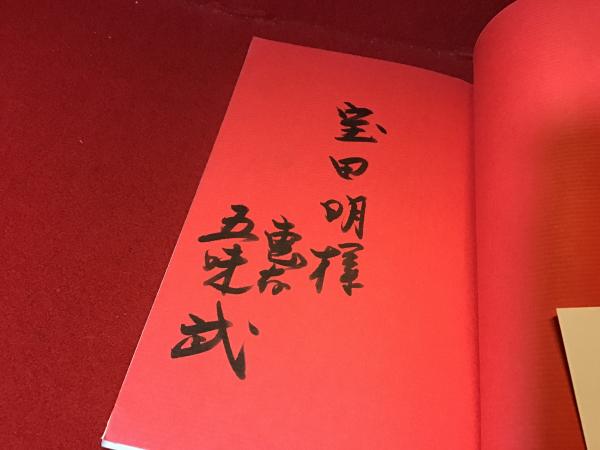 宝田明様
恵存
五味武